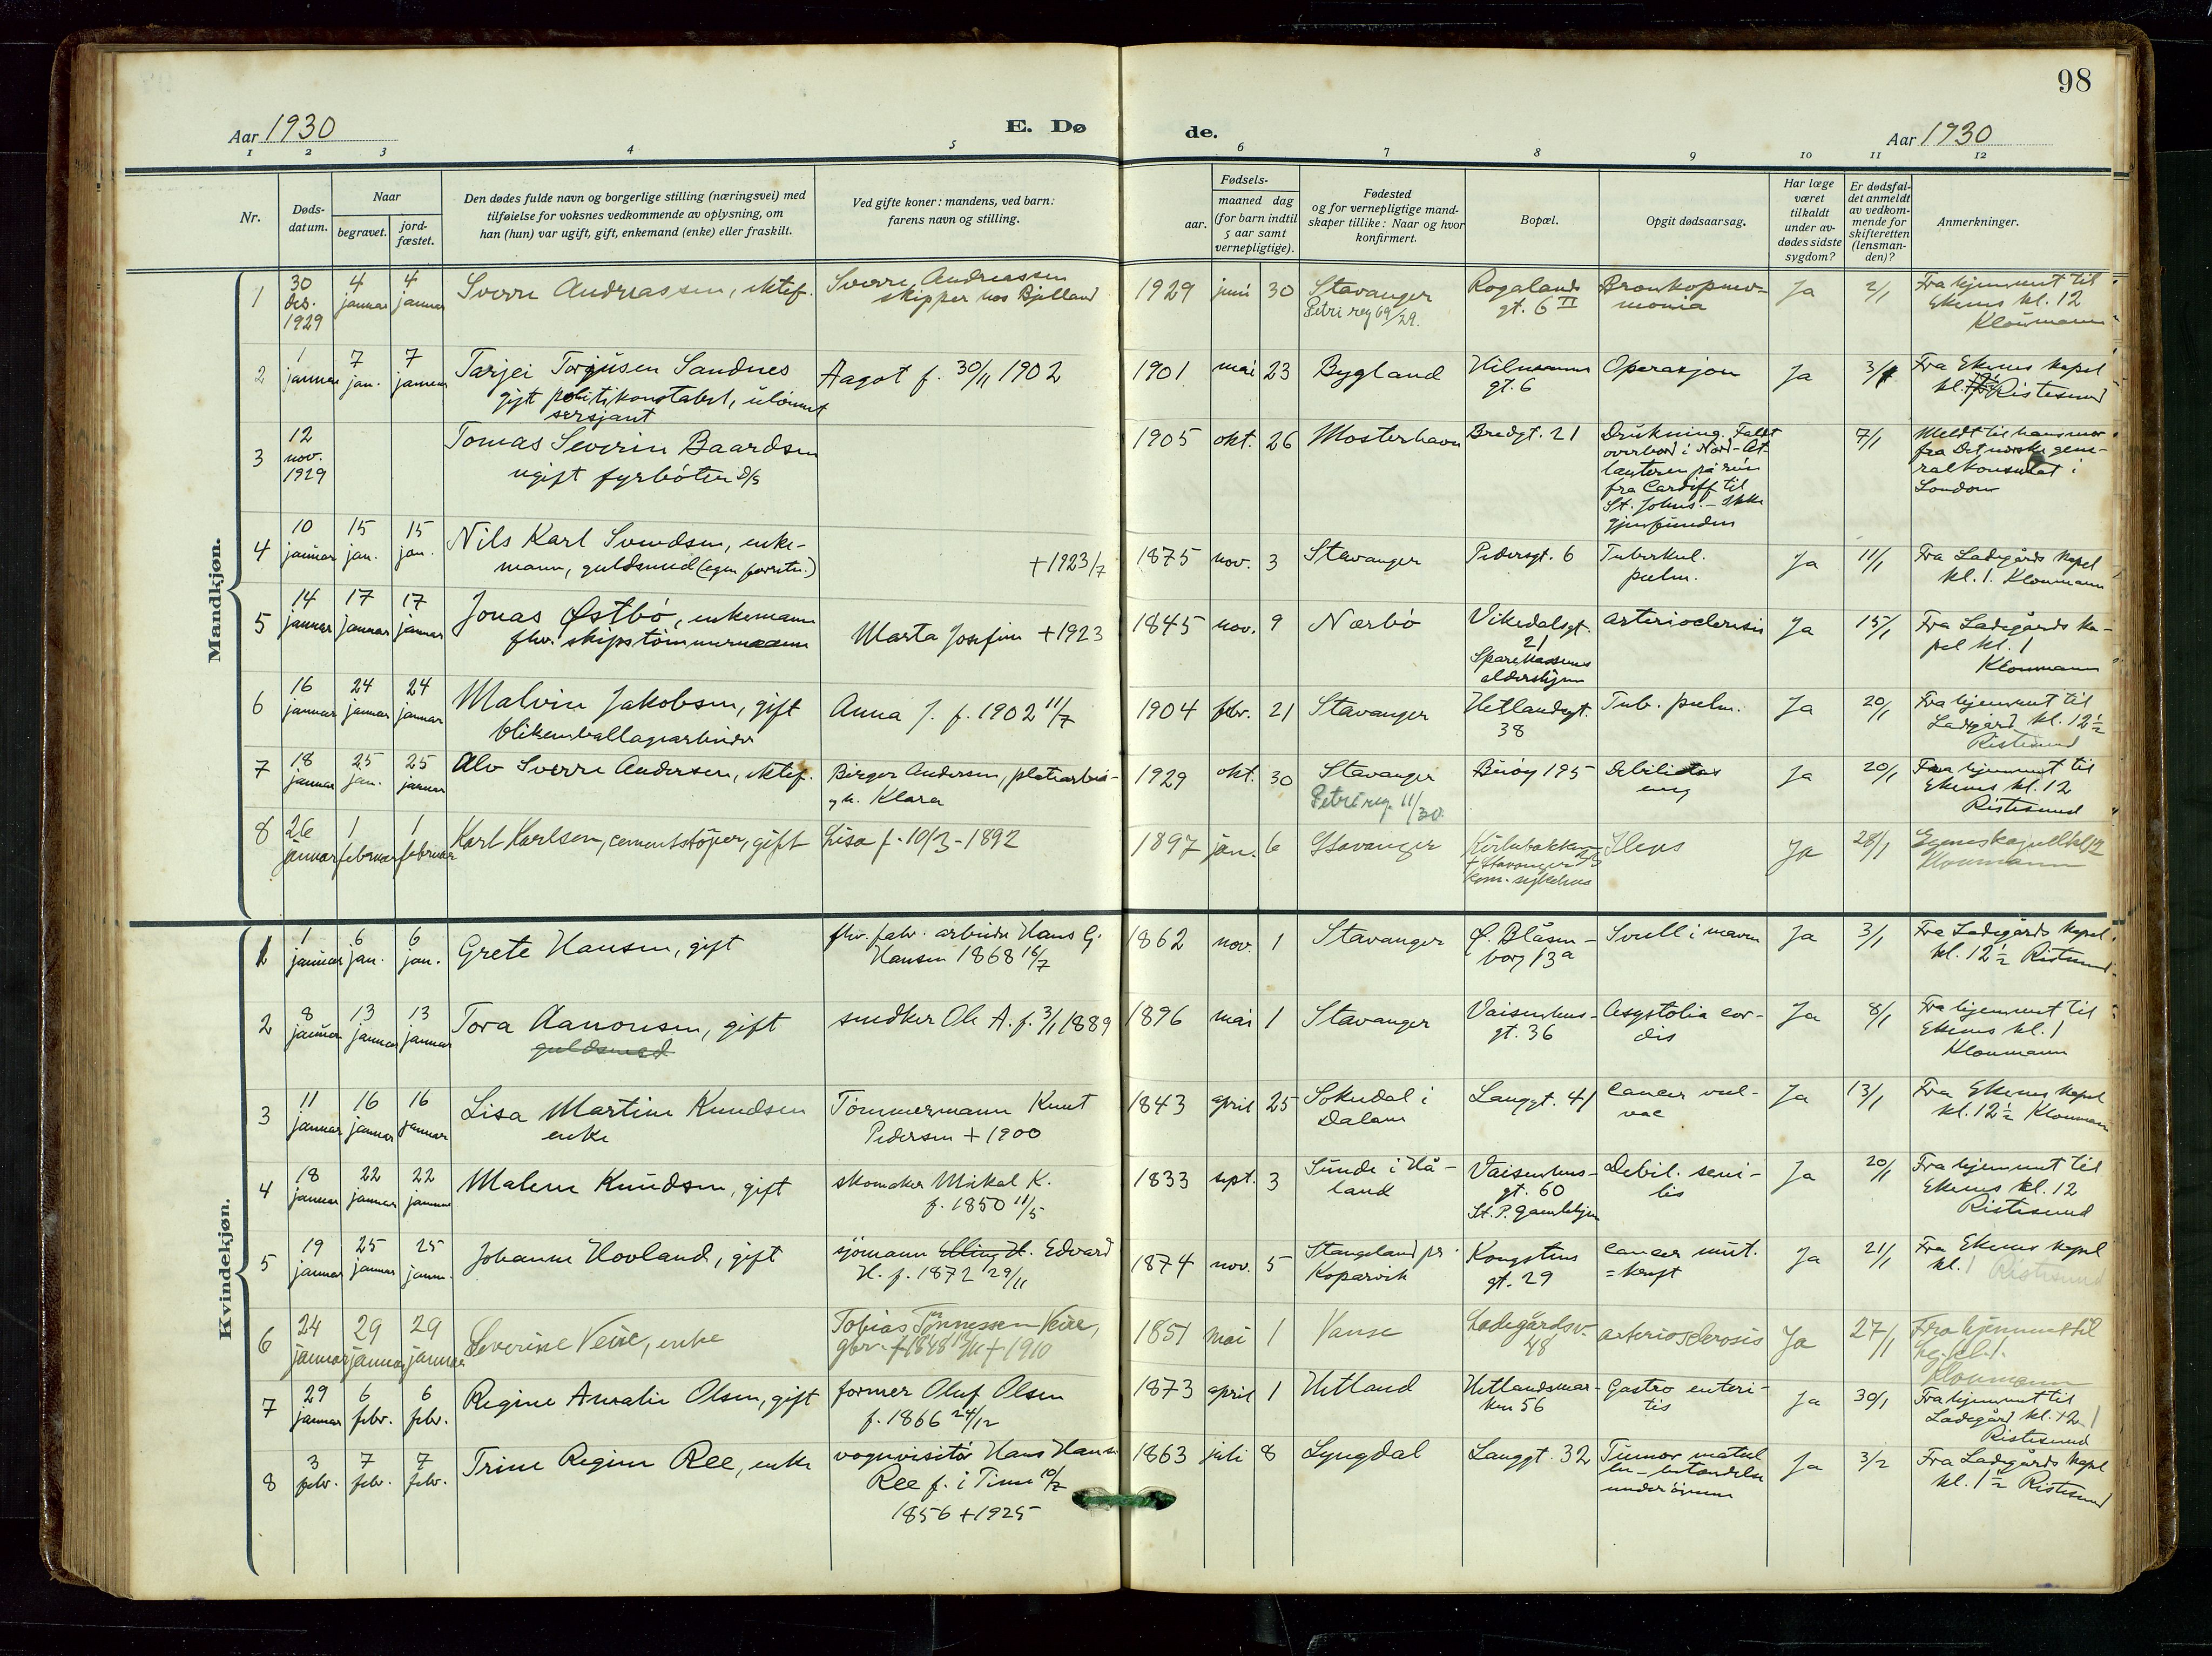 98
Aar 1930
E. Dø
de.
Aar 1930
1 2 3 4 5 6 7 8 9 10 11 12
Nr.
Døds-
datum.
Naar
begravet.
jord-
fæstet.
Den dødes fulde navn og borgerlige stilling (næringsvei) med
tilføielse for voksnes vedkommende av oplysning, om
han (hun) var ugift, gift, enkemand (enke) eller fraskilt.
Ved gifte koner: mandens, ved barn:
farens navn og stilling.
Fødsels-
aar.
maaned dag
(for barn indtil
5 aar samt
vernepligtige).
Fødested
og for vernepligtige mand-
skaper tillike: Naar og hvor
konfirmert.
Bopæl.
Opgit dødsaarsag.
Har læge
været
tilkaldt
under av-
dødes sidste
sygdom?
Er dødsfal-
det anmeldt
av vedkom-
mende for
skifteretten
(lensman-
den)?
Anmerkninger.
Mandkjøn.
1
30
des.
1929
4
januar
4
januar
Sverre Andreassen, ektef.
Sverre Andreassen
skipper hos Bjelland
1929 juni 30
Stavanger
Petri reg 69/29.
Rogalands
gt. 6 II
Bronkopnev-
monia
Ja
2/1
Fra hjemmet til
Ekenes kl. 12
Kloumann
2
1
januar
7
jan.
7
januar
Tarjei Torjusen Sandnes
gift politikonstabel, ulönnet
sersjant
Aagot f. 30/11 1902
1901 mai 23
Bygland
Hilmanns
gt. 6
Operasjon
Ja
3/1
Fra Ekenes kapel
kl. Ristesund
3
12
nov.
1929
Tomas Severin Baardsen
ugift fyrböter d/s
1905 okt. 26
Mosterhavn
Bredgt. 21
Drukning. Faldt
overbord i Nord-At-
lanteren på reis
fra Cardiff til
St. Johns. - Ikke
gjenfunden
7/1
Meldt til hans mor
fra Det norske gene-
ralkonsulat i
London
4
10
januar
15
jan.
15
jan.
Nils Karl Svendsen, enke-
mann, guldsmed (egen forretn.)
+1923/7
1875 nov. 3
Stavanger
Pedersgt. 6
Tuberkul.
pulm.
Ja
11/1
Fra Ladegårds kapel
kl. 1. Kloumann
5
14
januar
17
januar
17
januar
Jonas Østbö, enkemann
fhv. skipstömmermann
Marta Josefine +1923
1845 nov. 9
Nærbö
Vikedalsgt.
21
Sparekassens
aldershjem
arteriosclerosis
Ja
15/1
Fra Ladegårds ka-
pel kl. 1
Kloumann
6
16
januar
24
januar
24
januar
Malvin Jakobsen, gift
blikemballagearbeider
Anna J. f. 1902 11/7
1904 febr. 21
Stavanger
Hetlandsgt.
38
Tub. pulm.
Ja
20/1
Fra hjemmet til
Ladegård kl. 12½
Ristesund
7
18
januar
25
jan.
25
januar
Alv Sverre Andersen, ektef.
Birger Andersen, platearbei-
og h. Klara
1929 okt. 30
Stavanger
Petri reg. 11/30.
Buöy 195
Debilitas
eng
Ja
20/1
Fra hjemmet til
Ekenes kl. 12
Ristesund
8
26
januar
1
februar
1
februar
Karl Karlsen, cementstöper, gift
Lisa f. 10/3 - 1892
1897 jan. 6
Stavanger
Kirkebakken
+ Stavanger
kom. sykehus
Ileus
Ja
28/1
Egenes kapell kl 12
Kloumann
Kvindekjøn.
1
1
januar
6
jan.
6
jan.
Grete Hansen, gift
fhv. fabr. arbeider Hans G.
Hansen 1868 16/7
1862 nov. 1
Stavanger
Ø. Blåsen-
borg 13a
Svull i maven
Ja
3/1
Fra Ladegårds kapel
kl. 12½ Ristesund
2
8
januar
13
januar
13
januar
Tora Aanonsen, gift
guldsmed
snedker Ole A. f. 3/1 1889
1896 mai 1
Stavanger
Vaisenhus-
gt. 36
Asystolia cor-
dis
Ja
8/1
Fra hjemmet til
Ekenes kl. 1
Kloumann
3
11
januar
16
januar
16
januar
Lisa Martine Knudsen
enke
Tömmermann Knut
Pedersen + 1900
1843 april 25
Sokndal i
Dalane
Langgt. 41
Cancer vul-
vae
Ja
13/1
Fra Ekenes kapel
kl. 12½ Kloumann
4
18
januar
22
januar
22
januar
Malene Knudsen, gift
skomaker Mikal K.
f. 1850 11/5
1833 sept. 3
Sunde i Hå-
land
Vaisenhus-
gt. 60
St. P. gamlehjem
Debil. seni-
lis
Ja
20/1
Fra hjemmet til
Ekenes kl. 12
Ristesund
5
19
januar
25
januar
25
janu.
Johanne Hovland, gift
sjömann Elling H. Edvard
H. f. 1872 29/11
1874 nov. 5
Stangeland pr.
Kopervik
Kongstens
gt. 29
Cancer uut.
= kreft
Ja
21/1
Fra Ekenes kapel
kl. 1 Ristesund
6
24
januar
29
januar
29
januar
Severine Veire, enke
Tobias Tönnessen Veire,
gbr. f 1848 + 1910
1851 mai 1
Vanse
Ladegårdsv.
48
arteriosclerosis
Ja
27/1
Fra hjemmet til
kl. 1.
Kloumann
7
29
januar
6
febr.
6
febr.
Regine Amalie Olsen, gift
former Oluf Olsen
f. 1866 24/12
1873 april 1
Hetland
Hetlandsmar-
ken 56
Gastro enteri-
tis
Ja
30/1
Fra hjemmet til
Ladegård kl. 12 1
Ristesund
8
3
febr.
7
febr.
7
febr.
Trine Regine Ree, enke
vognvisitör Hans Hansen
Ree f. i Time 10/2
1856 +1925
1863 juli 8
Lyngdal
Langgt. 32
Tumor
Ja
3/2
Fra Ladegårds kapel
kl. 1½ Ristesund